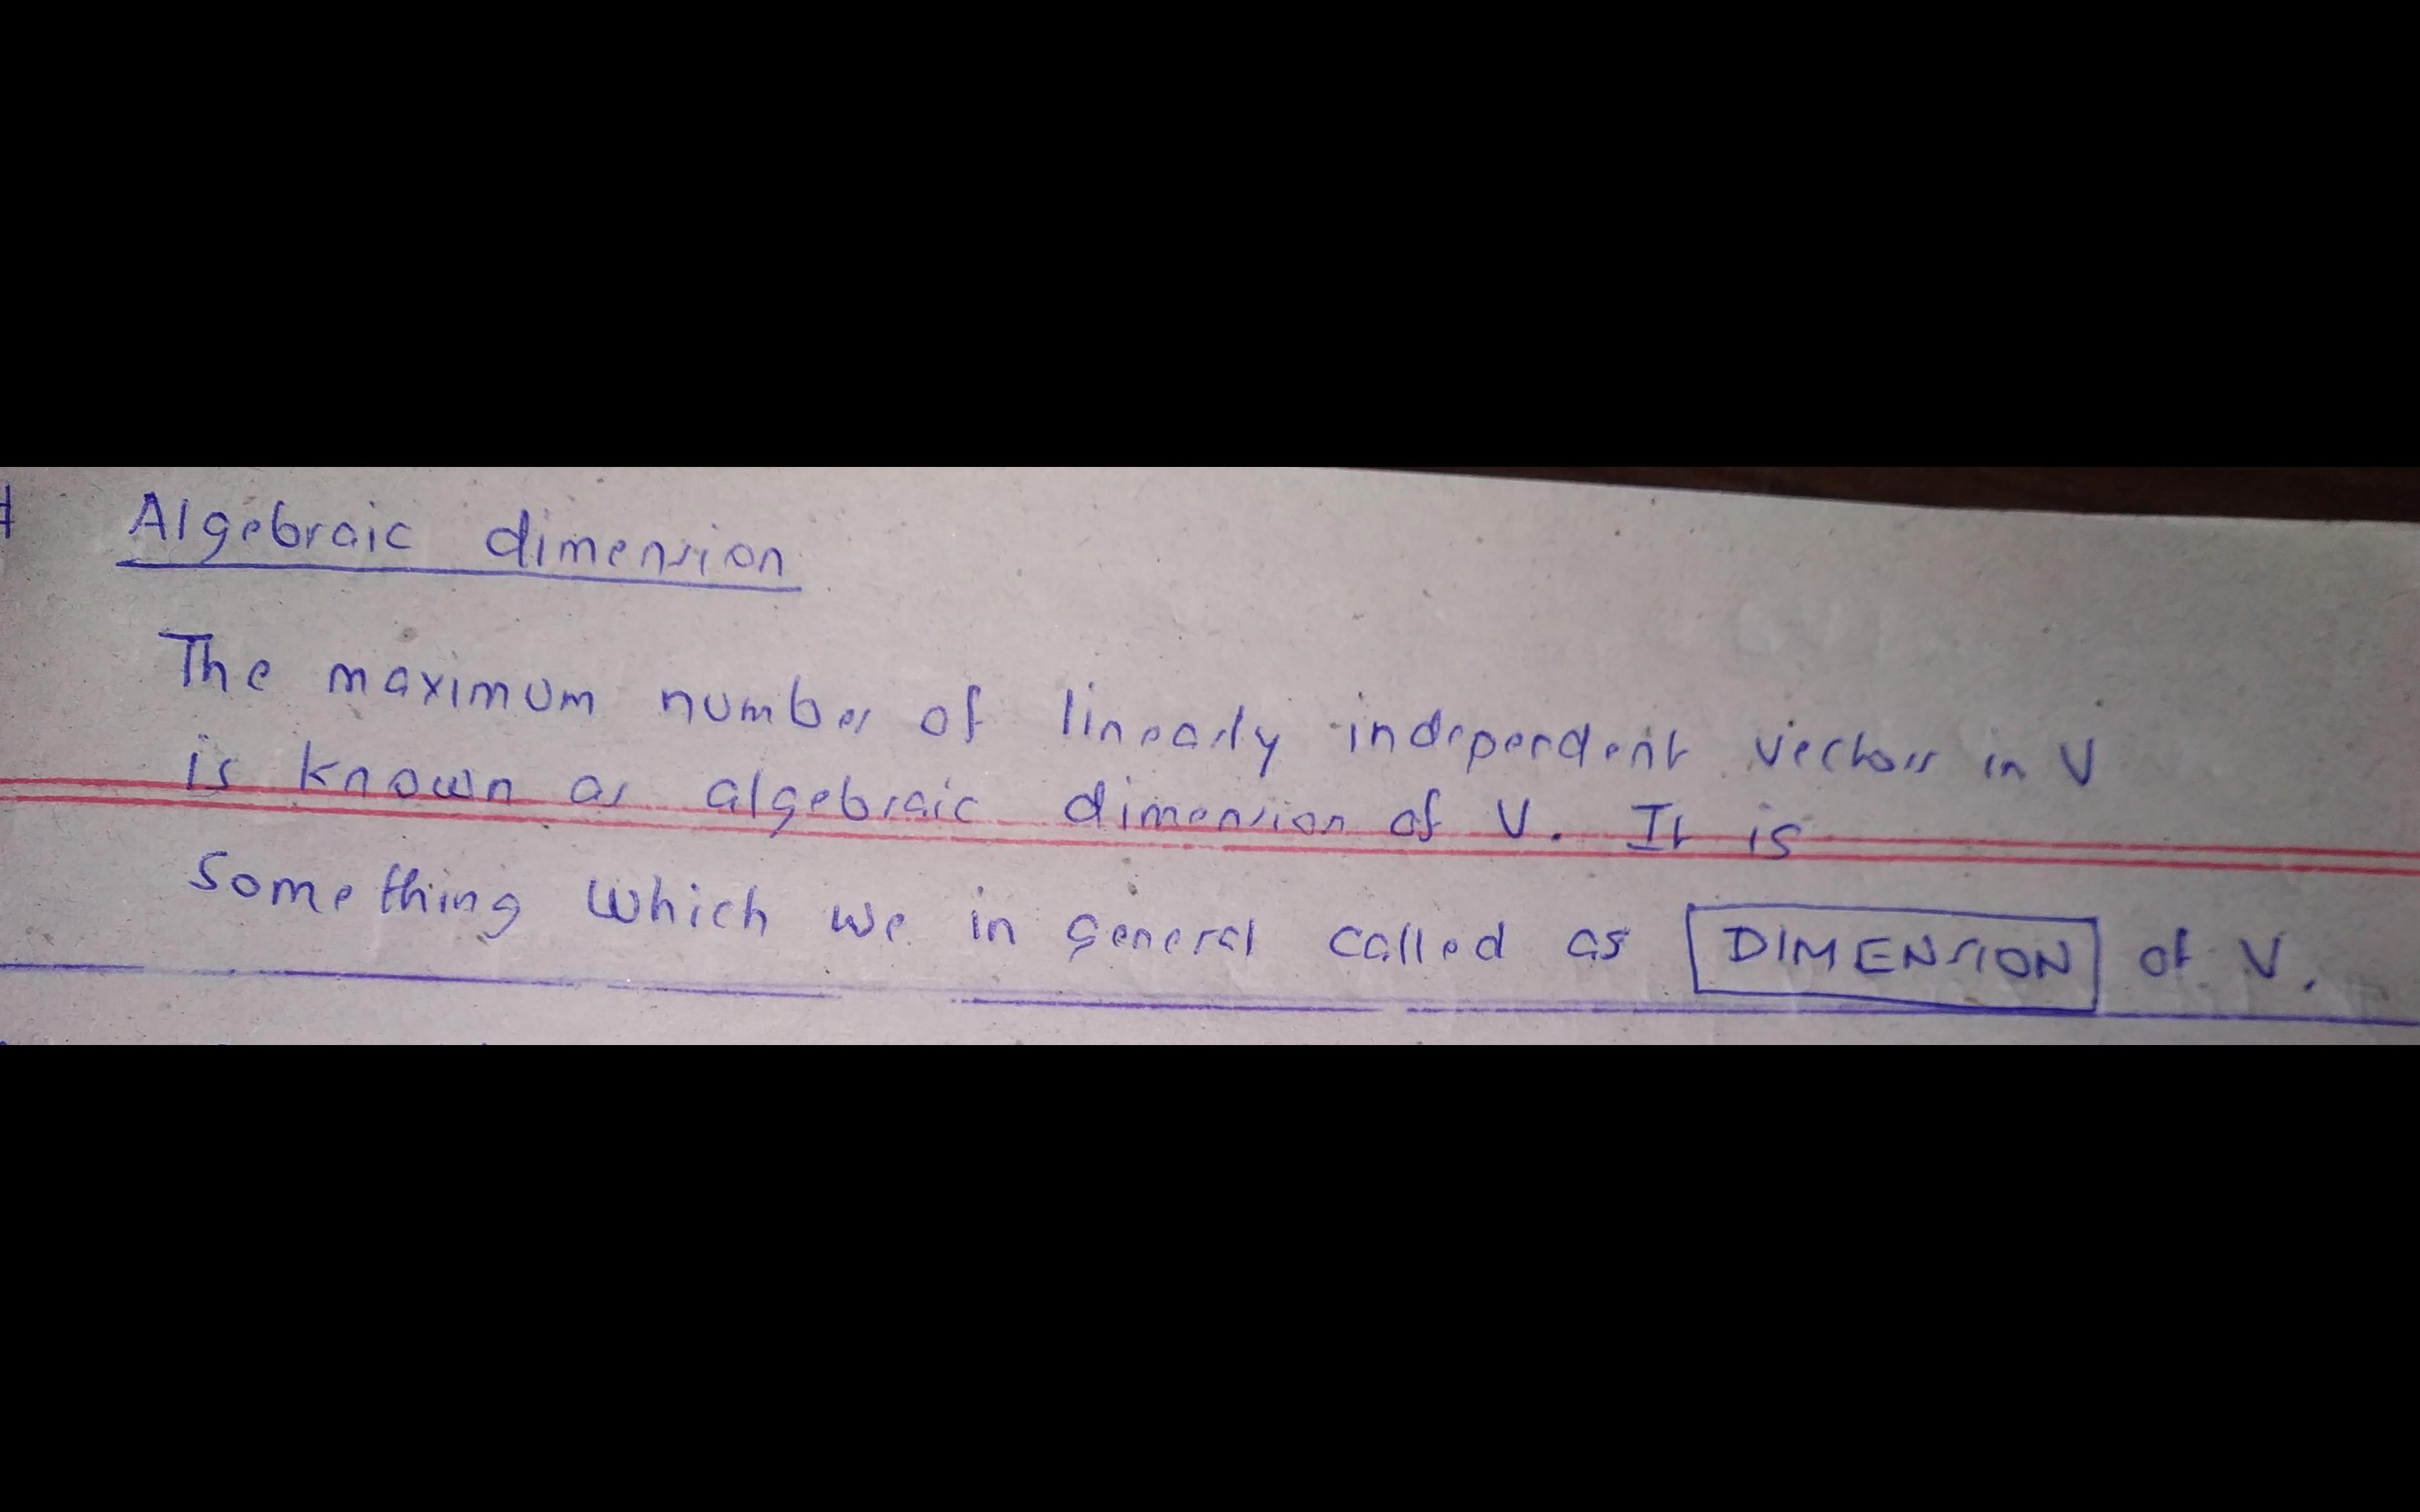 Algebraic dimension
The maximum number of linearly independent vectors in V
is known as algebraic dimension of V. It is
Something which we in general called as DIMENSION of V.